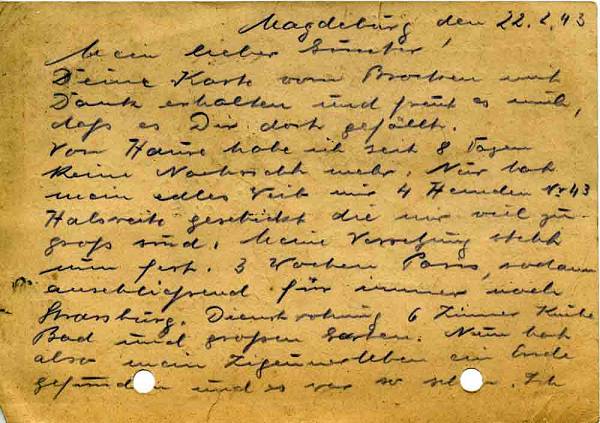 Magdeburg den 22.2.43
Mein lieber Günter!
Deine Karte vom Brocken mit
Dank erhalten und freut es mich,
daß es Dir dort gefällt.
Von Hause habe ich seit 8 Tagen
keine Nachricht mehr. Nur hat
mein edles Weib mir 4 Hemden Nr 43
Halsweite geschickt die mir viel zu
groß sind. Meine Versetzung steht
nun fest. 3 Wochen Paris, sodann
anschließend für immer nach
Strassburg. Dienstwohnung 6 Zimmer Küche
Bad und großen Garten. Nun hat
also mein Zigeunerleben ein Ende
gefunden und es war so schön. Ich